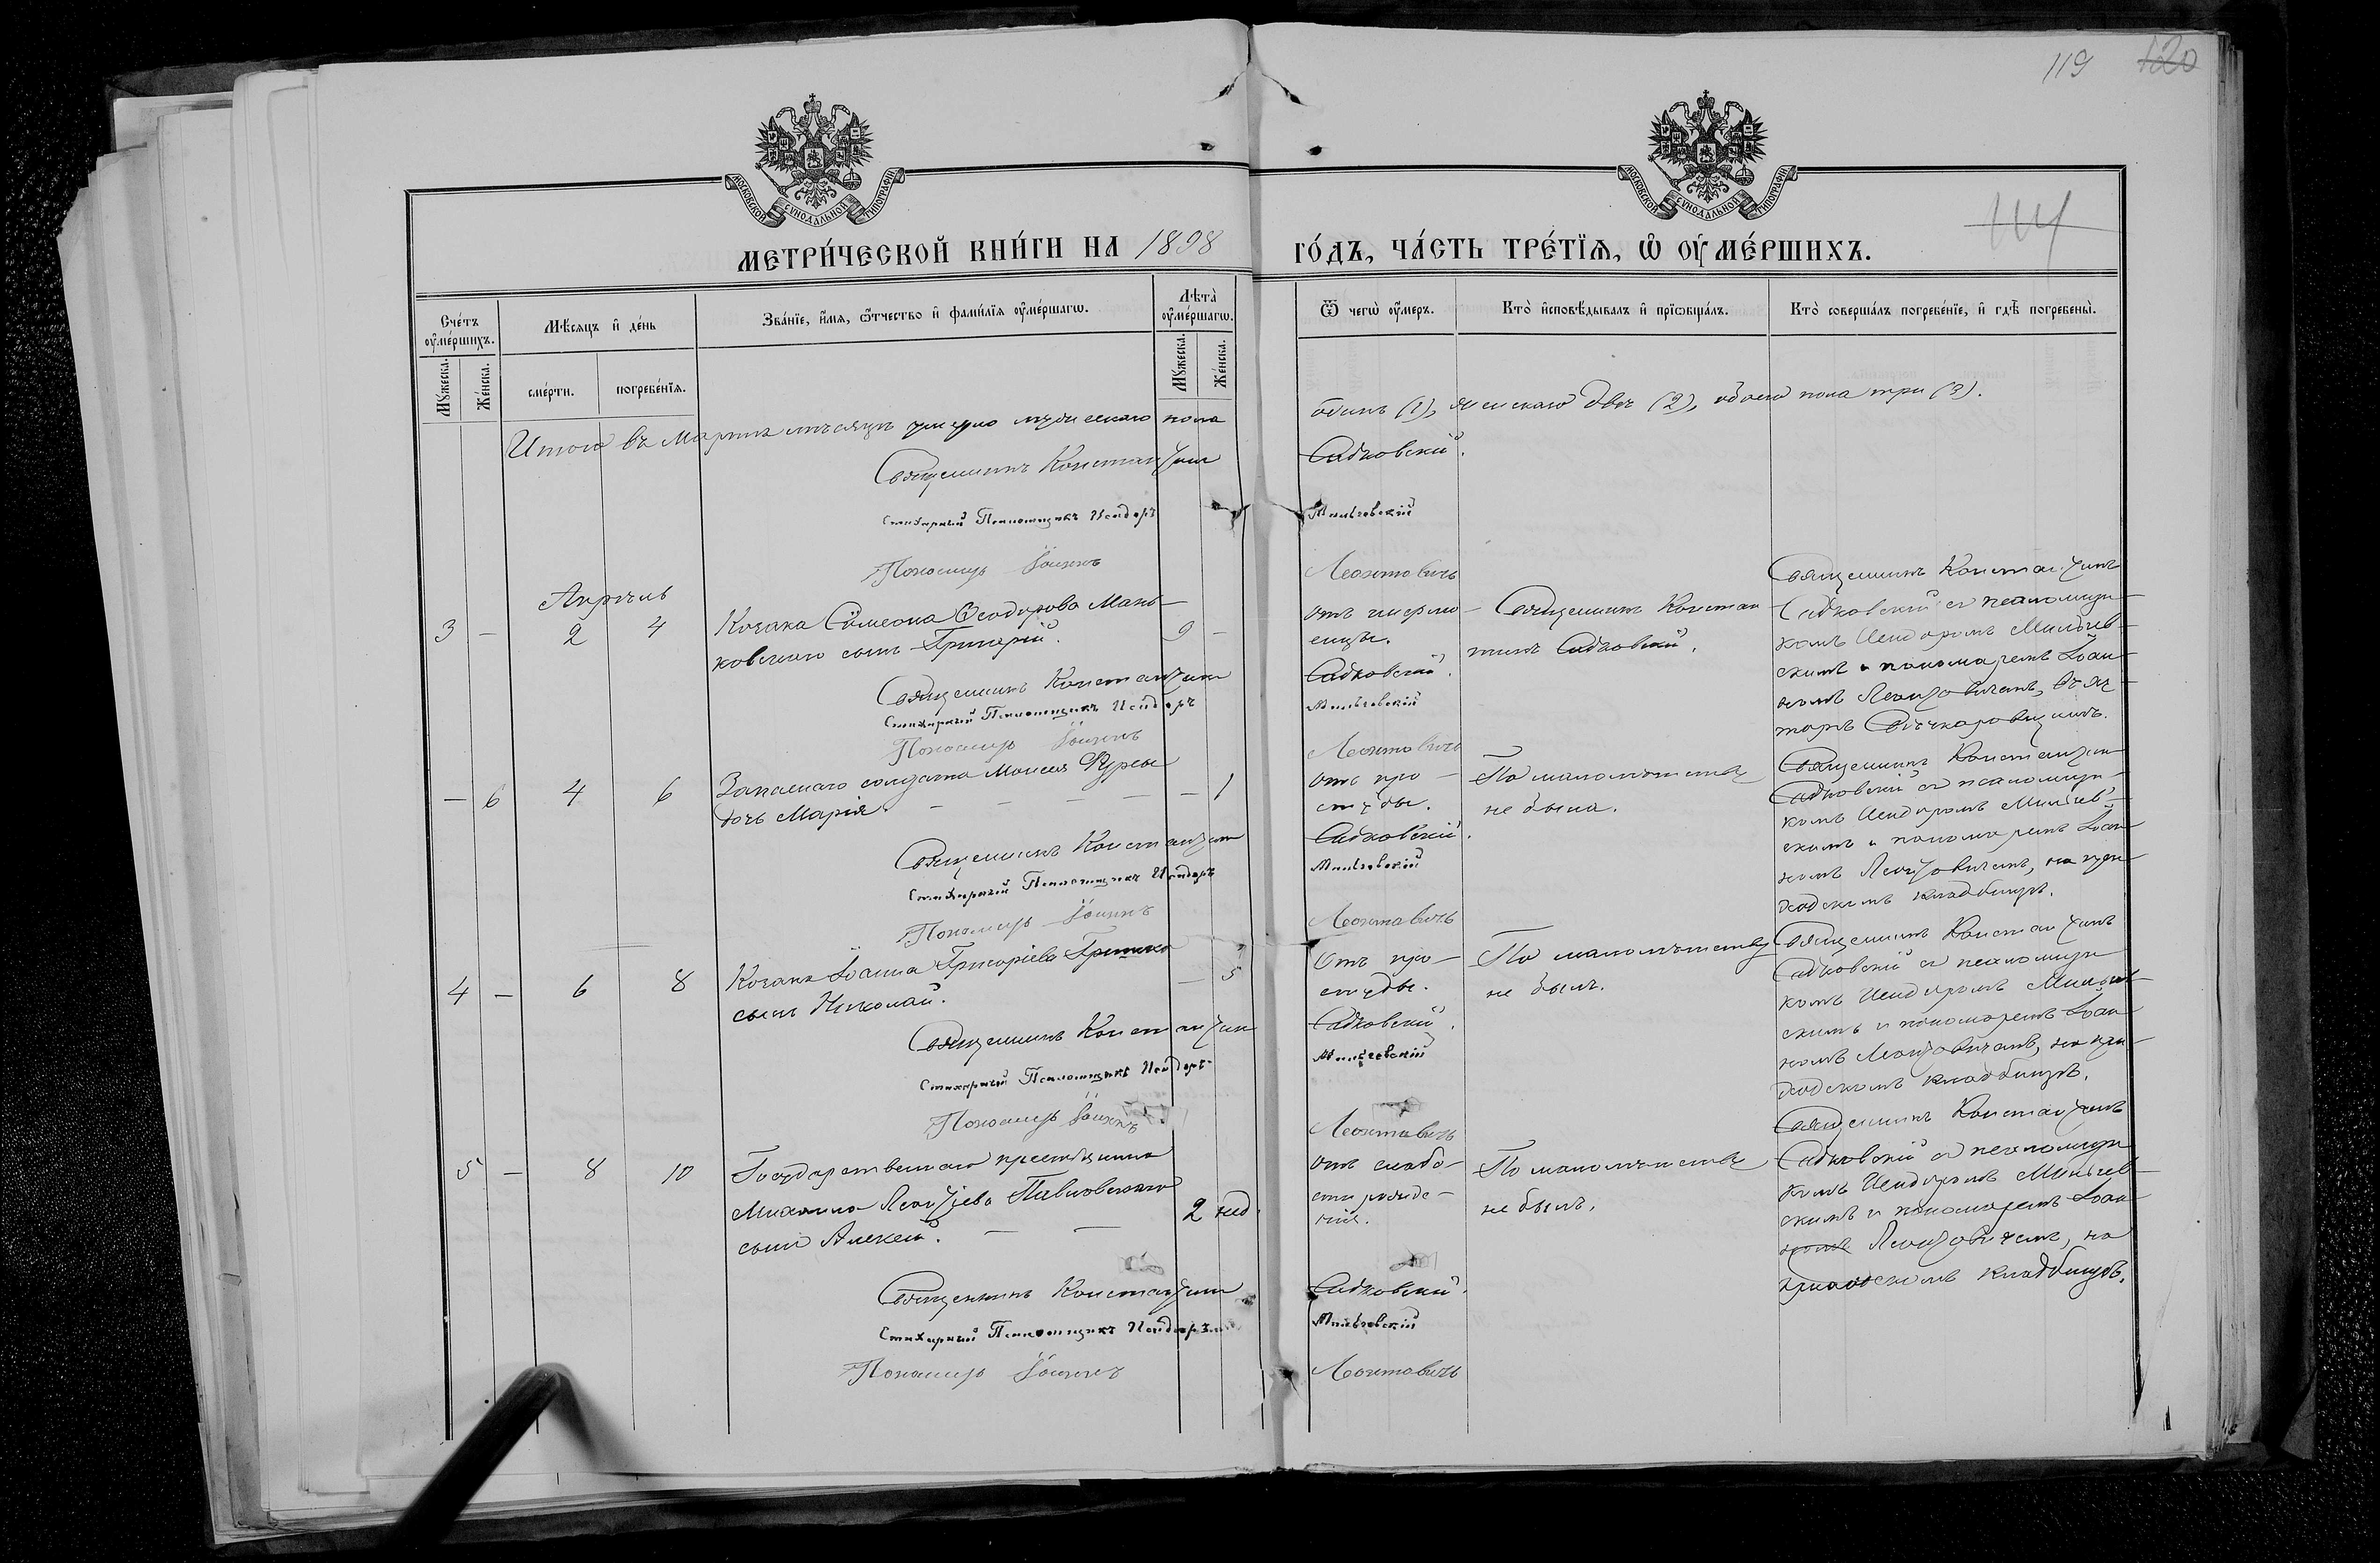 119 120
МОСКОВСКОЙ СѴНОДАЛЬНОЙ ТИПОГРАФІИ
МОСКОВСКОЙ СѴНОДАЛЬНОЙ ТИПОГРАФІИ
МЕТРИ́ЧЕСКОЙ КНИ́ГИ НА 1898 ГО́ДЪ, ЧА́СТЬ ТРЕ́ТЇѦ, Ѡ҆ ОУ҆МЕ́РШИХЪ.
Сче́тъ оу҆ме́ршихъ.
Мꙋ́жеска.
Же́нска.
Мѣ́сѧцъ и҆ де́нь
сме́рти.
погребе́нїѧ.
Зва́нїе, и҆́мѧ, ѻ҆́тчество и҆ фами́лїѧ оу҆ме́ршагѡ.
Лѣта̀ оу҆ме́ршагѡ.
Мꙋ́жеска.
Же́нска.
Ѿ чегѡ̀ оу҆́меръ.
Кто̀ и҆сповѣ́дывалъ и҆ прїѡбща́лъ.
Кто̀ соверша́лъ погребе́нїе, и҆ гдѣ̀ погребены̀.
Итого въ Мартѣ мѣсяцѣ умерло мужескаго пола
одинъ (1), женскаго двѣ (2), обоего пола три (3).
Священникъ Константинъ Садковскій.
Стихарный Псаломщикъ Исидоръ Мильчевскій
Пономарь Іоаннъ Леонтовичъ
Апрѣль
3 — 2 4
Козака Сѵмеона Ѳеодорова Мань-
ковскаго сынъ Григорій.
9 —
отъ инфлю-
енцы.
Священникъ Констан-
тинъ Садковскій.
Священникъ Константинъ
Садковскій съ псаломщи-
комъ Исидоромъ Мильчев-
скимъ и пономаремъ Іоан-
номъ Леонтовичемъ, въ
Священникъ Константинъ Садковскій.
Стихарный Псаломщикъ Исидоръ Мильчевскій
Пономарь Іоаннъ Леонтовичъ
— 6 4 6
Запаснаго солдата Моисея Фурсы
дочь Марія.
— 1
отъ про-
студы.
По малолѣтству
не была.
Священникъ Константинъ
Садковскій съ псаломщи-
комъ Исидоромъ Мильчев-
скимъ и пономаремъ Іоан-
номъ Леонтовичемъ, на при-
ходскомъ кладбищѣ.
Священникъ Константинъ Садковскій.
Стихарный Псаломщикъ Исидоръ Мильчевскій
Пономарь Іоаннъ Леонтовичъ
4 — 6 8
Козака Іоанна Григоріева
сынъ Николай.
— 5
Отъ про-
студы.
По малолѣтству
не былъ.
Священникъ Константинъ
Садковскій съ псаломщи-
комъ Исидоромъ Мильчев-
скимъ и пономаремъ Іоан-
номъ Леонтовичемъ, на при-
ходскомъ кладбищѣ.
Священникъ Константинъ Садковскій.
Стихарный Псаломщикъ Исидоръ Мильчевскій
Пономарь Іоаннъ Леонтовичъ
5 — 8 10
Государственнаго крестьянина
Михаила Леонтіева Павловскаго
сынъ Алексій.
2 нед.
отъ слабо-
сти рожде-
нія.
По малолѣтству
не былъ.
Священникъ Константинъ
Садковскій съ псаломщи-
комъ Исидоромъ Мильчев-
скимъ и пономаремъ Іоан-
номъ Леонтовичемъ, на
приходскомъ кладбищѣ.
Священникъ Константинъ Садковскій.
Стихарный Псаломщикъ Исидоръ Мильчевскій
Пономарь Іоаннъ Леонтовичъ